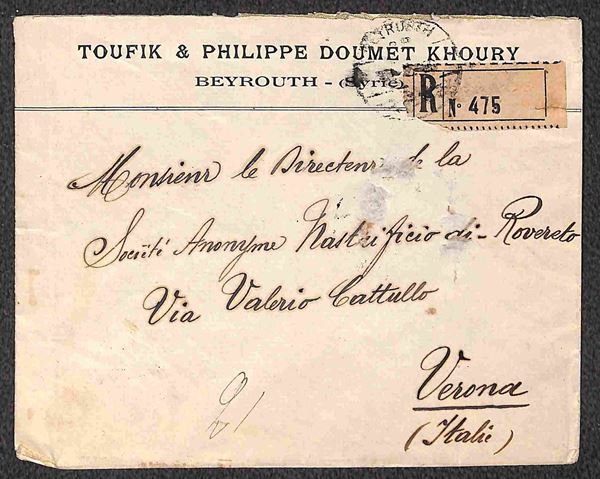 BEYROUTH
TOUFIK & PHILIPPE DOUMET KHOURY
BEYROUTH - (Syrie)
R
No 475
Monsieur le Directeur de la
Société Anonyme Nastrificio di - Rovereto
Via Valerio Cattullo
Verona
(Italie)